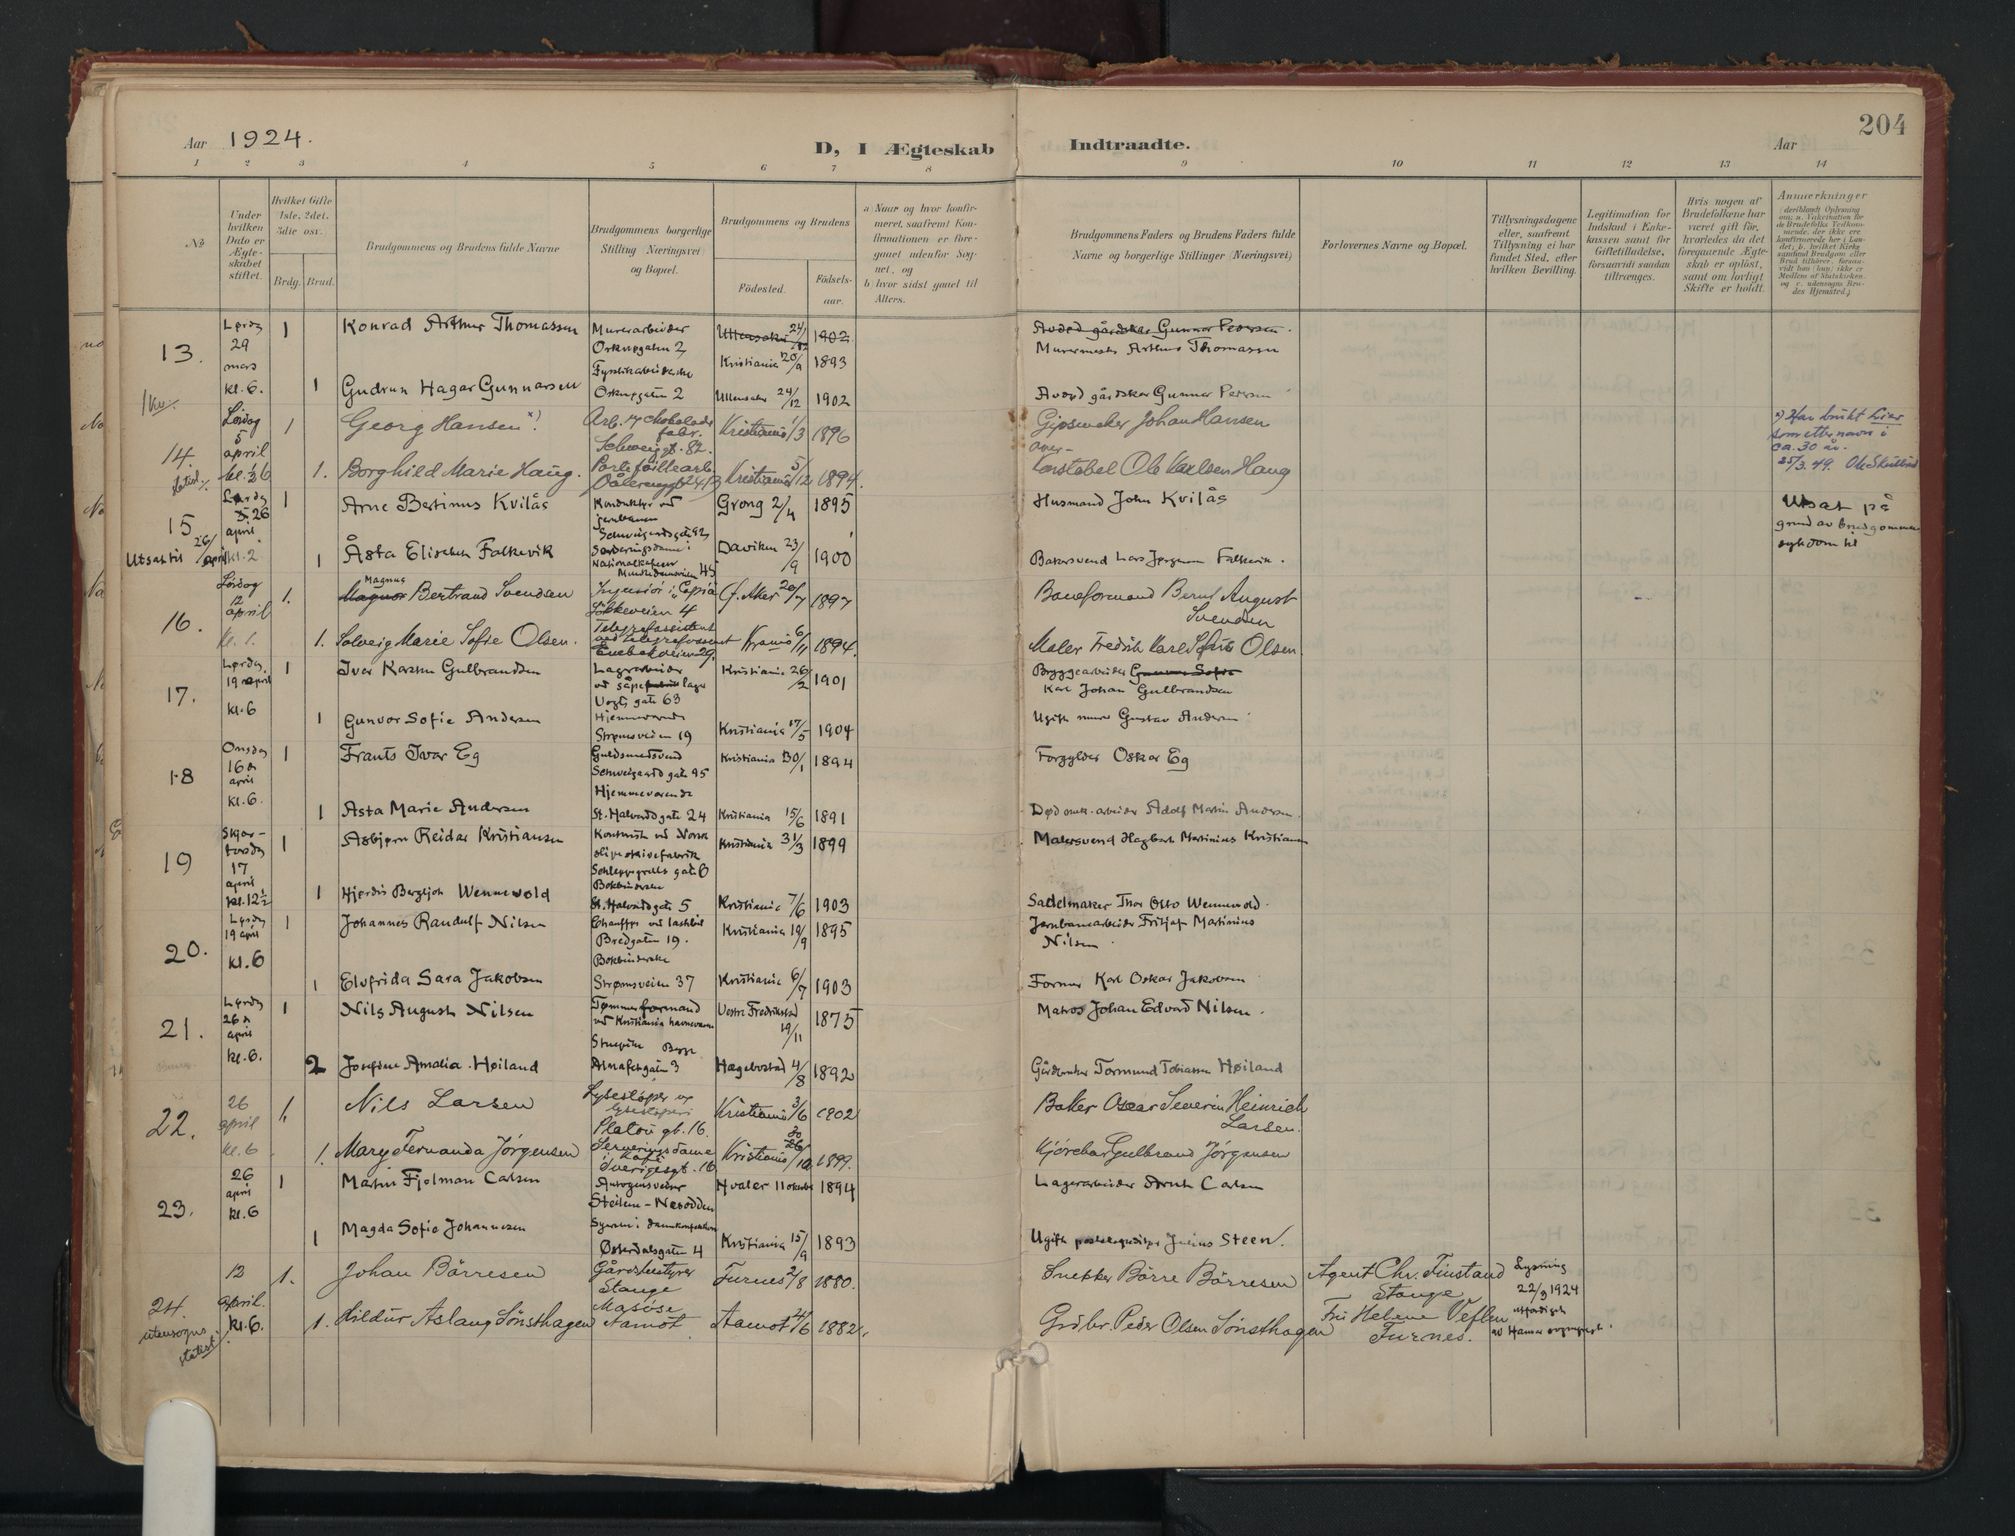 Aar 1924.
D, I Ægteskab Indtraadte.
Aar
204
1 2 3 4 5 6 7 8 9 10 11 12 13 14
No
Under hvilken Dato er Ægteskabet stiftet.
Hvilket Gifte 1ste, 2det, 3die osv.
Brdg. Brud.
Brudgommens og Brudens fulde Navne
Brudgommens borgerlige Stilling (Næringsvei) og Bopæl.
Brudgommens og Brudens
Fødested.
Fødselsaar.
a) Naar og hvor konfirmeret, saafremt Konfirmationen er foregaaet udenfor Sognet, og
b) hvor sidst gaaet til Alters.
Brudgommens Faders og Brudens Faders fulde Navne og borgerlige Stillinger (Næringsvei)
Forlovernes Navne og Bopæl.
Tillysningsdagene eller, saafremt Tillysning ei har fundet Sted, efter hvilken Bevilling.
Legitimation for Indskud i Enkekassen samt for Giftetilladelse, forsaavidt saadan tiltrænges.
Hvis nogen af Brudefolkene har været gift før, hvorledes da det foregaaende Ægteskab er opløst, samt om lovligt Skifte er holdt.
Anmærkninger
13. Lørdag 29 mars kl. 6.
1 Konrad Arthur Thomassen Murerarbeider Orknøgaten 2 Kristiania 20/9 1893 Murermester Arthur Thomassen
1 Gudrun Hagar Gunnarsen Orknøgaten 2 Ullensaker 24/12 1902 Avdød gårdsker Gunnar Pedersen
14. Lördag 5 april
1 Georg Hansen x) Arb. v/ chokolade fabr. Schweigg. 82. Kristiania 1/3 1896 Gipsmaker Johan Hansen
1. Borghild Marie Haug. Portefóillearb. Kristiania 5/12 1894. Konstabel Ole Karlsen Haug
x) Har brukt Lier som etternavn i ca. 30 år. 25/3.49.
15 Lørdag 26 april kl. 2
Utsat til 26/april
1 Arne Bertinus Kvilås Konduktør ved jernbanen Grong 2/4 1895 Husmand John Kvilås
1 Åsta Elisabeth Falkevik Daviken 23/9 1900 Bakersvend Lars Jørgensen Falkevik.
Utsat på grund av brudgommens sykdom til
16. Lördag 12 april kl. 1.
1. Magnus Bertrand Svendsen Ingeniör i "Expia" Lökkeveien 4 Ö. Aker 20/7 1897 Baneformand Bernt August Svendsen
1. Solveig Marie Sofie Olsen. Telegrafassistent Enebakveien 29. Krania 6/11 1894. Maler Fredrik Karl Sofus Olsen.
17. Lørdag 19 april kl. 6
1 Iver Karsten Gulbrandsen Lagerarbeider Vogts gate 63 Kristiania 26/2 1901 Bryggearbeider Karl Johan Gulbrandsen
1 Gunvor Sofie Andersen Hjemmeværende Strømsveien 19 Kristiania 17/5 1904 Ugift murer Gustav Andersen
18 Onsdag 16de april kl. 6.
1 Frants Ivar Eg Guldsmedsvend Schweigaards gate 95 Kristiania 30/1 1894 Forgylder Oskar Eg
1 Asta Marie Andersen Hjemmeværende St. Halvards gate 24 Kristiania 15/6 1891 Død arbeider Adolf Martin Andersen.
19 Skjærtorsdag 17 april kl. 12½
1 Asbjørn Reidar Kristiansen Kontorist ved Norsk slipeskivefabrik Schleppegrells gate 6 Kristiania 31/3 1899 Malersvend Hagbart Martinius Kristiansen
1 Hjørdis Bergljot Wennevold Bokbinderske St. Halvards gate 5 Kristiania 7/6 1903 Sadelmaker Thor Otto Wennevold.
20. Lørdag 19 april kl. 6
1 Johannes Randulf Nilsen Chauffør ved lastebil Bredgaten 19. Kristiania 19/9 1895 Jernbanearbeider Fritjof Martinius Nilsen
1 Elvfrida Sara Jakobsen Bokbinderske Strømsveien 37 Kristiania 6/7 1903 Former Karl Oskar Jakobsen
21. Lørdag 26de april kl. 6.
1 Nils August Nilsen Tømmerformand ved Kristiania havnevæsen Vestre Fredrikstad 19/11 1875 Matros Johan Edvard Nilsen.
2 Josefine Amalia Høiland Almafetgaten 3 Hægebostad 4/8 1892 Gårdbruker Tormund Tobiassen Høiland
22. 26 april kl. 6
1. Nils Larsen Lysestöper v/ lysestöperi Platou gt. 16. Kristiania 3/6 1902 Baker Oscar Severin Heinrich Larsen.
1. Mary Fernanda Jörgensen Serveringsdame i Kafé Sverigesgt. 16 Kristiania 30/10 1899. Kjörekar Gulbrand Jörgensen
23. 26 april kl. 6
1 Martin Fjelman Carlsen Autogensveiser Steilene - Nesodden Hvaler 11 oktober 1894 Lagerarbeider Arnt Carlsen
1 Magda Sofie Johannesen Syerske i damekonfektion Østerdalsgaten 4 Kristiania 15/9 1893 Ugift postekspeditør Julius Steen.
24. 12 april. kl. 6.
utensogns statist.
1. Johan Börresen Gårdsbestyrer Stange Furnes 2/8 1880. Snekker Börre Börresen Agent Chr. Finstad Stange Lysning 22/3 1924
1. Hildur Aslaug Sönsthagen Masöse Aamot Aamot 24/6 1882. Grdbr. Peder Olsen Sönsthagen Fru Helene Veflen Furnes. utfærdiget av Hamar sogneprest.